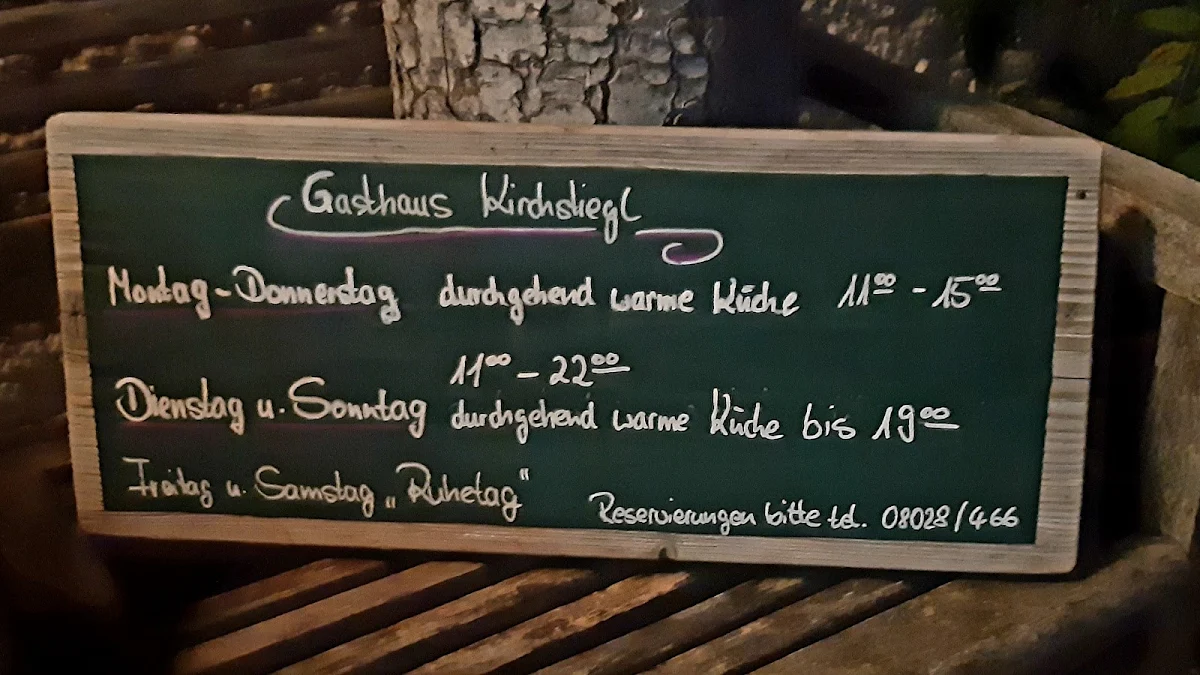 Gasthaus Kirchstiegl
Montag-Donnerstag durchgehend warme Küche 11⁰⁰ - 15⁰⁰
11⁰⁰ - 22⁰⁰
Dienstag u. Sonntag durchgehend warme Küche bis 19⁰⁰
Freitag u. Samstag „Ruhetag“
Reservierungen bitte tel. 08028/466